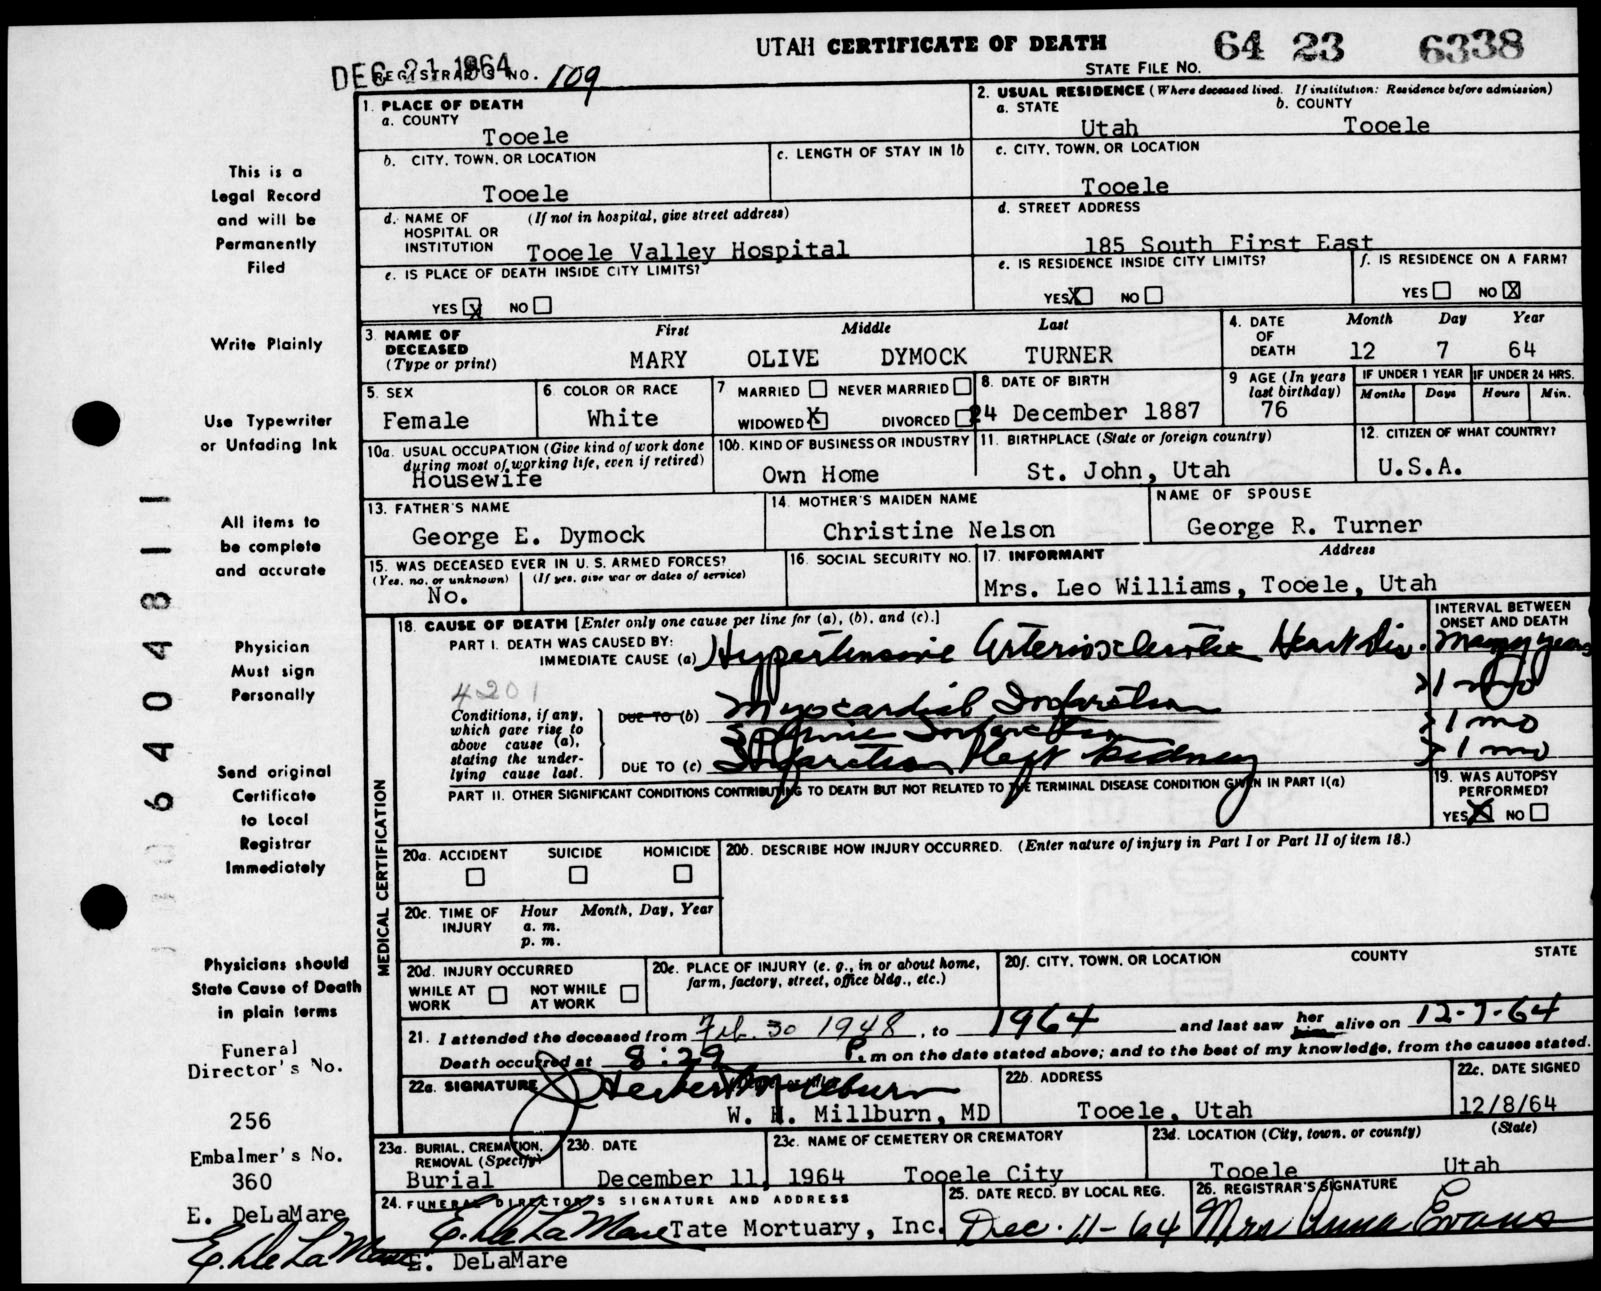 UTAH CERTIFICATE OF DEATH
64 23 6338
STATE FILE NO.
DEC 21 1964
REGISTRAR'S NO. 109
1. PLACE OF DEATH
a. COUNTY
Tooele
2. USUAL RESIDENCE (Where deceased lived. If institution: Residence before admission)
a. STATE b. COUNTY
Utah Tooele
b. CITY, TOWN, OR LOCATION
Tooele
c. LENGTH OF STAY IN 1b
c. CITY, TOWN, OR LOCATION
Tooele
d. NAME OF HOSPITAL OR INSTITUTION (If not in hospital, give street address)
Tooele Valley Hospital
d. STREET ADDRESS
185 South First East
e. IS PLACE OF DEATH INSIDE CITY LIMITS?
YES X NO
e. IS RESIDENCE INSIDE CITY LIMITS?
YES X NO
f. IS RESIDENCE ON A FARM?
YES NO X
3. NAME OF DECEASED (Type or print)
First Middle Last
MARY OLIVE DYMOCK TURNER
4. DATE OF DEATH
Month Day Year
12 7 64
5. SEX
Female
6. COLOR OR RACE
White
7 MARRIED NEVER MARRIED
WIDOWED X DIVORCED
8. DATE OF BIRTH
24 December 1887
9 AGE (In years last birthday)
76
IF UNDER 1 YEAR
Months Days
IF UNDER 24 HRS.
Hours Min.
10a. USUAL OCCUPATION (Give kind of work done during most of working life, even if retired)
Housewife
10b. KIND OF BUSINESS OR INDUSTRY
Own Home
11. BIRTHPLACE (State or foreign country)
St. John, Utah
12. CITIZEN OF WHAT COUNTRY?
U.S.A.
13. FATHER'S NAME
George E. Dymock
14. MOTHER'S MAIDEN NAME
Christine Nelson
NAME OF SPOUSE
George R. Turner
15. WAS DECEASED EVER IN U. S. ARMED FORCES?
(Yes, no, or unknown) (If yes, give war or dates of service)
No.
16. SOCIAL SECURITY NO.
17. INFORMANT Address
Mrs. Leo Williams, Tooele, Utah
MEDICAL CERTIFICATION
18. CAUSE OF DEATH [Enter only one cause per line for (a), (b), and (c).]
INTERVAL BETWEEN ONSET AND DEATH
PART I. DEATH WAS CAUSED BY:
IMMEDIATE CAUSE (a) Hypertensive Arteriosclerotic Heart Dis. many years
4201
Conditions, if any, which gave rise to above cause (a), stating the underlying cause last.
DUE TO (b) Myocardial Infarction >1 mo
Splenic Infarction >1 mo
DUE TO (c) Infarction left kidney >1 mo
PART II. OTHER SIGNIFICANT CONDITIONS CONTRIBUTING TO DEATH BUT NOT RELATED TO THE TERMINAL DISEASE CONDITION GIVEN IN PART I(a)
19. WAS AUTOPSY PERFORMED?
YES X NO
20a. ACCIDENT SUICIDE HOMICIDE
20b. DESCRIBE HOW INJURY OCCURRED. (Enter nature of injury in Part I or Part II of item 18.)
20c. TIME OF INJURY
Hour Month, Day, Year
a. m.
p. m.
20d. INJURY OCCURRED
WHILE AT WORK NOT WHILE AT WORK
20e. PLACE OF INJURY (e. g., in or about home, farm, factory, street, office bldg., etc.)
20f. CITY, TOWN, OR LOCATION COUNTY STATE
21. I attended the deceased from Feb. 30 1948, to 1964 and last saw her him alive on 12-7-64
Death occurred at 8:29 P.m on the date stated above; and to the best of my knowledge, from the causes stated.
22a. SIGNATURE
Herbert Millburn
W. H. Millburn, MD
22b. ADDRESS
Tooele, Utah
22c. DATE SIGNED
12/8/64
23a. BURIAL, CREMATION, REMOVAL (Specify)
Burial
23b. DATE
December 11, 1964
23c. NAME OF CEMETERY OR CREMATORY
Tooele City
23d. LOCATION (City, town, or county) (State)
Tooele Utah
24. FUNERAL DIRECTOR'S SIGNATURE AND ADDRESS
E. DeLaMare Tate Mortuary, Inc.
E. DeLaMare
25. DATE RECD. BY LOCAL REG.
Dec. 11-64
26. REGISTRAR'S SIGNATURE
Mrs Anna Evans
This is a
Legal Record
and will be
Permanently
Filed
Write Plainly
Use Typewriter
or Unfading Ink
All items to
be complete
and accurate
Physician
Must sign
Personally
Send original
Certificate
to Local
Registrar
Immediately
Physicians should
State Cause of Death
in plain terms
Funeral
Director's No.
256
Embalmer's No.
360
E. DeLaMare
E. DeLaMare